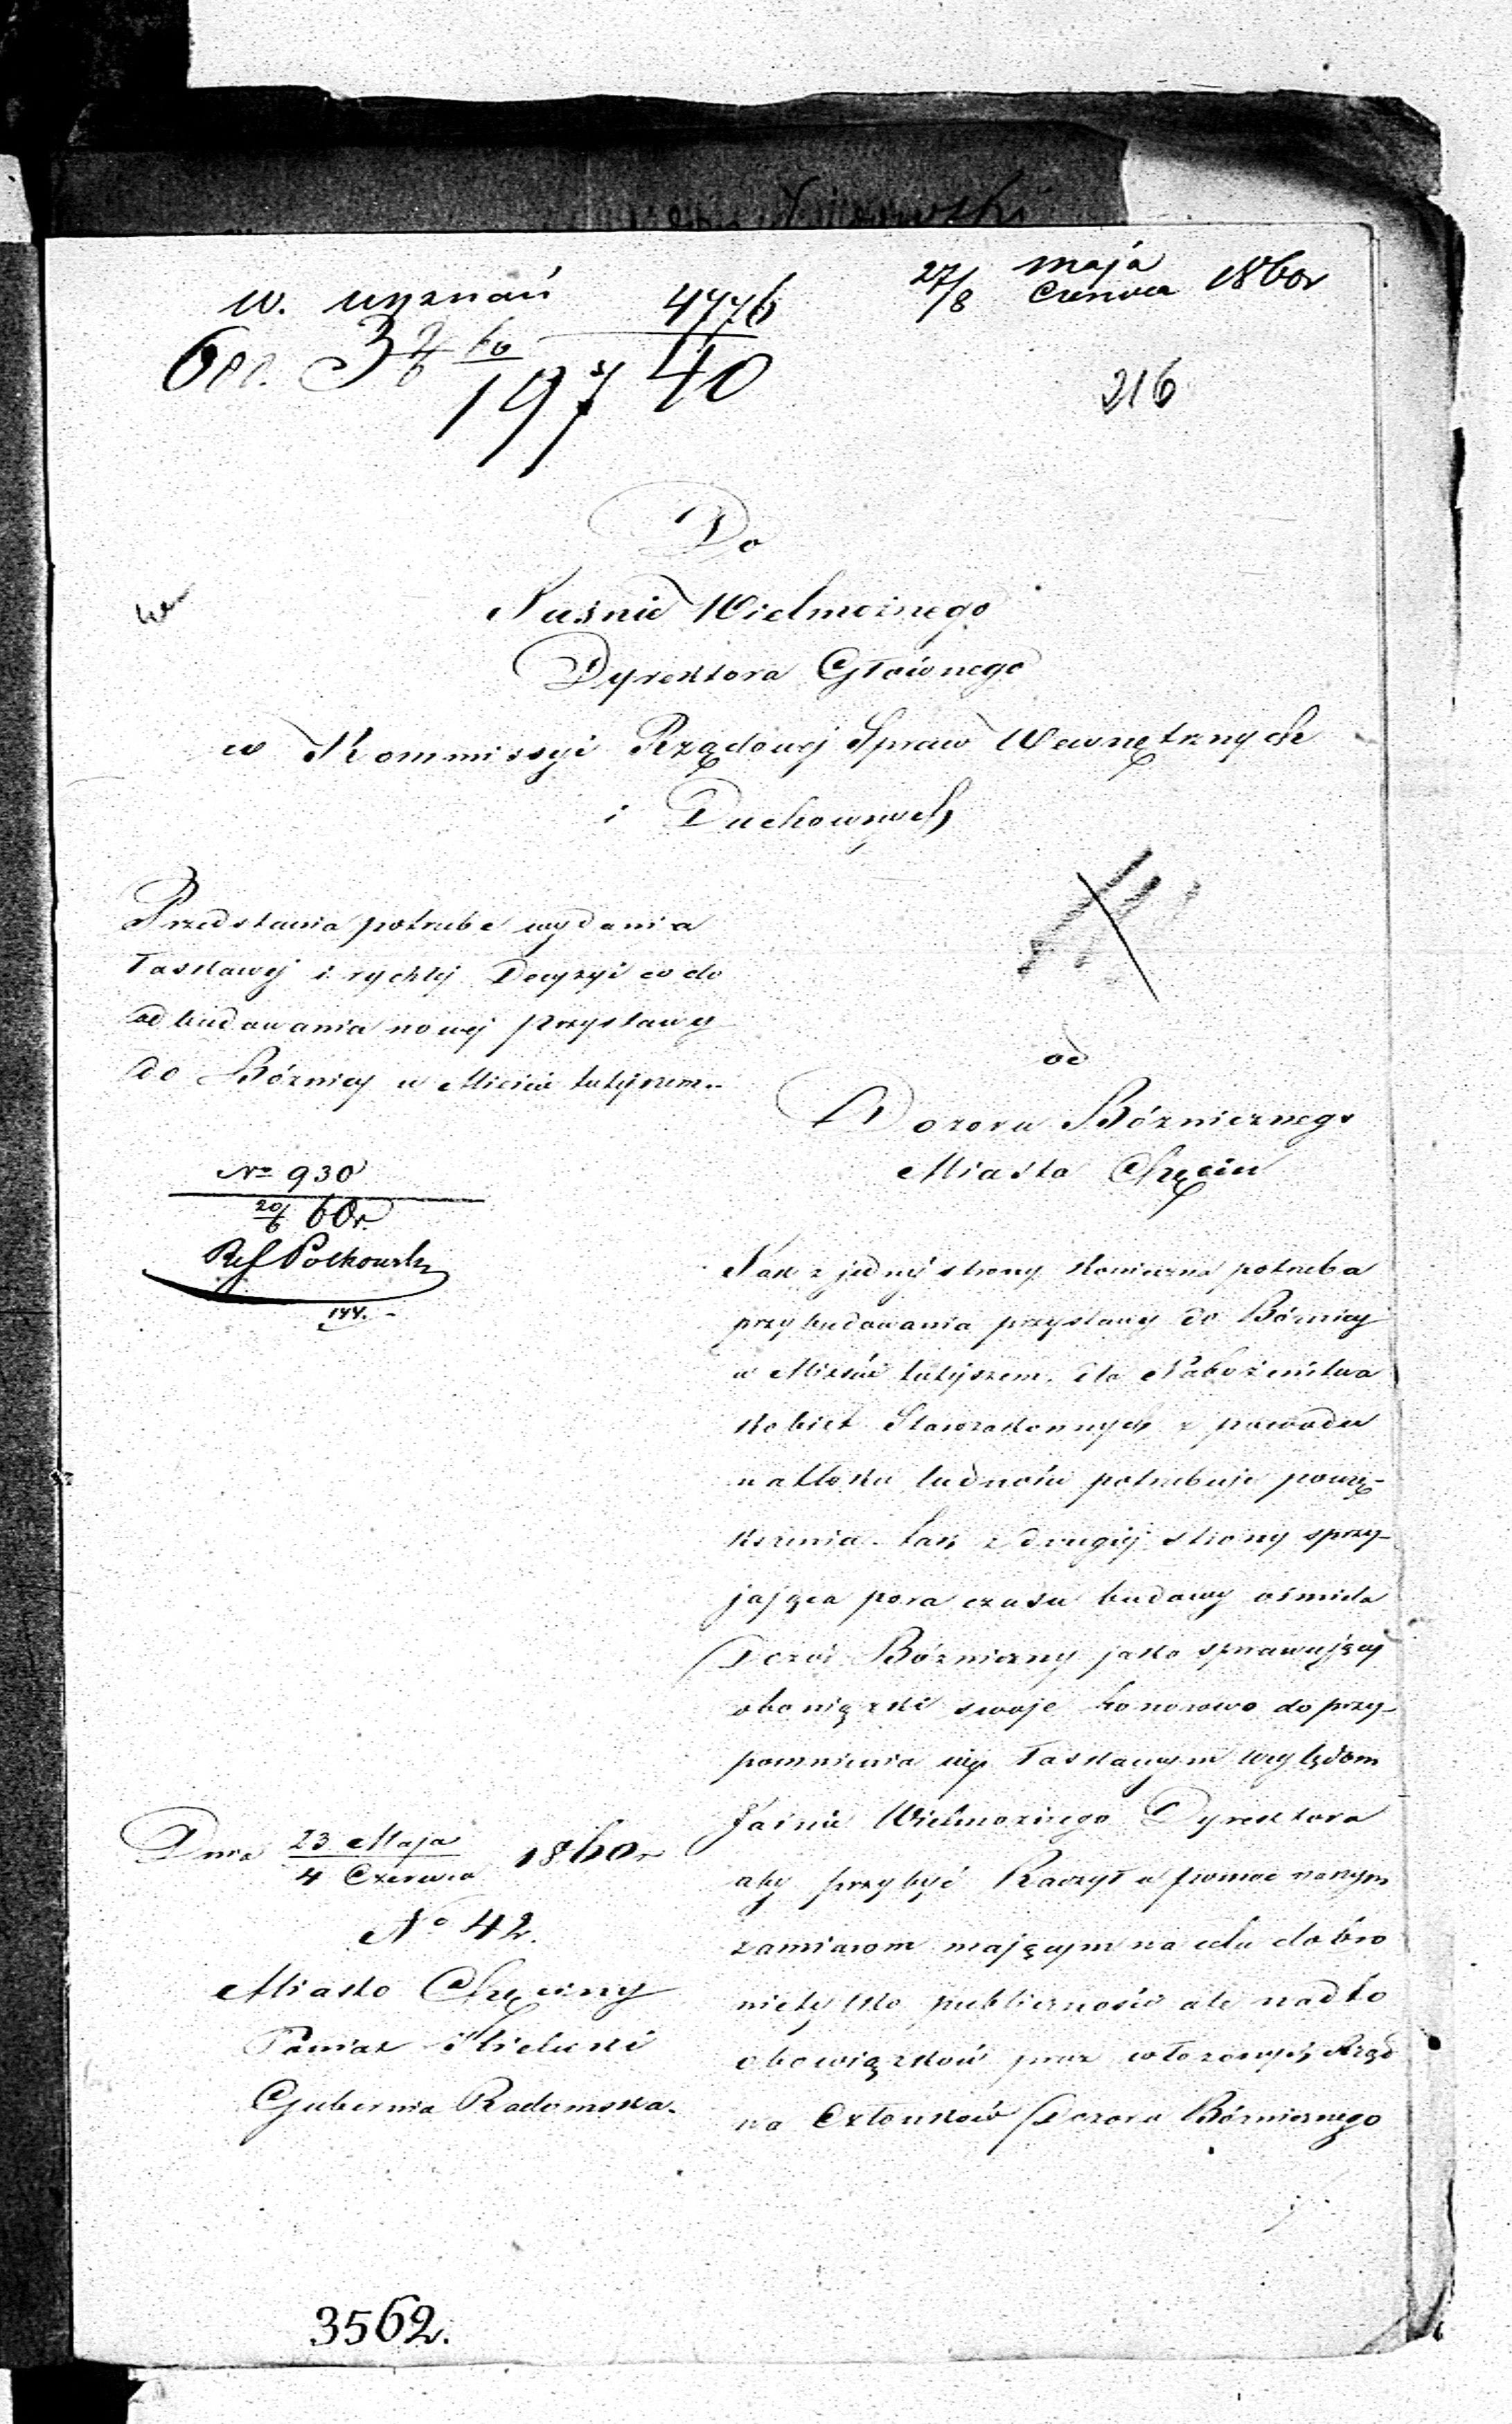 w. wyznań 4776 27/8 Maja Czerwca 1860r
197 40
216
Do
Jaśnie Wielmożnego
Dyrektora Głównego
w Kommissyi Rządowej Spraw Wewnętrznych
i Duchownych
Przedstawia potrzebe wydania
łaskawej i rychłej Decyzyi co do
odbudowania nowej przystawy
do Bóżnicy w Mieście tutéjszem.
No 930
20/6 60r.
Ref Polkowski
od
Dozoru Bóżnicznego
Miasta Chęcin
Jak z jednéj strony konieczna potrzeba
przybudowania przystawy do Bóżnicy
w Mieście tutéjszem, dla Nabożeństwa
kobiet Starozakonnych z powodu
natłoku ludności potrzebuje powię-
kszenia - tak z drugiéj strony sprzy-
jająca pora czasu budowy ośmiela
Dozór Bóżniczny jako sprawujący
obowiązki swoje honorowo do przy-
pomnienia się łaskawym względom
Jaśnie Wielmożnego Dyrektora
aby przybyć Raczył w pomoc naszym
zamiarom mającym na celu dobro
nietylko publiczności ale nadto
obowiązków przez włożonych Rząd
na Członków Dozoru Bóżnicznego
Dnia 23 Maja 4 Czerwca 1860r
No 42.
Miasto Chęciny
Powiat Kielecki
Gubernia Radomska.
3562.